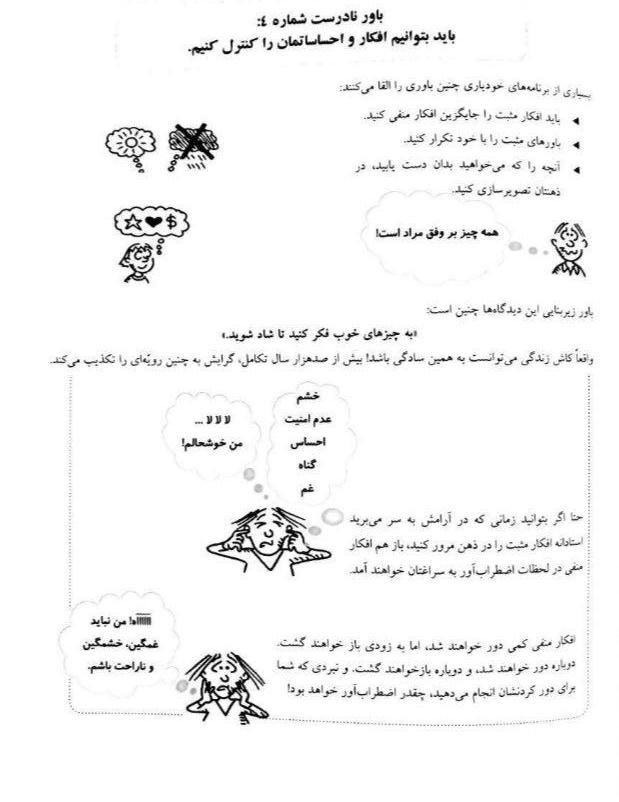 باور نادرست شماره ۴:
باید بتوانیم افکار و احساساتمان را کنترل کنیم.
بسیاری از برنامه‌های خودیاری چنین باوری را القا می‌کنند:
◄ باید افکار مثبت را جایگزین افکار منفی کنید.
◄ باورهای مثبت را با خود تکرار کنید.
◄ آنچه را که می‌خواهید بدان دست یابید، در
ذهنتان تصویرسازی کنید.
$
همه چیز بر وفق مراد است!
باور زیربنایی این دیدگاه‌ها چنین است:
«به چیزهای خوب فکر کنید تا شاد شوید.»
واقعاً کاش زندگی می‌توانست به همین سادگی باشد! بیش از صدهزار سال تکامل، گرایش به چنین رویّه‌ای را تکذیب می‌کند.
خشم
عدم امنیت
احساس
گناه
غم
لا لا لا ...
من خوشحالم!
حتا اگر بتوانید زمانی که در آرامش به سر می‌برید
استادانه افکار مثبت را در ذهن مرور کنید، باز هم افکار
منفی در لحظات اضطراب‌آور به سراغتان خواهند آمد.
اااااااه! من نباید
غمگین، خشمگین
و ناراحت باشم.
افکار منفی کمی دور خواهند شد، اما به زودی باز خواهند گشت.
دوباره دور خواهند شد، و دوباره بازخواهند گشت. و نبردی که شما
برای دور کردنشان انجام می‌دهید، چقدر اضطراب‌آور خواهد بود!